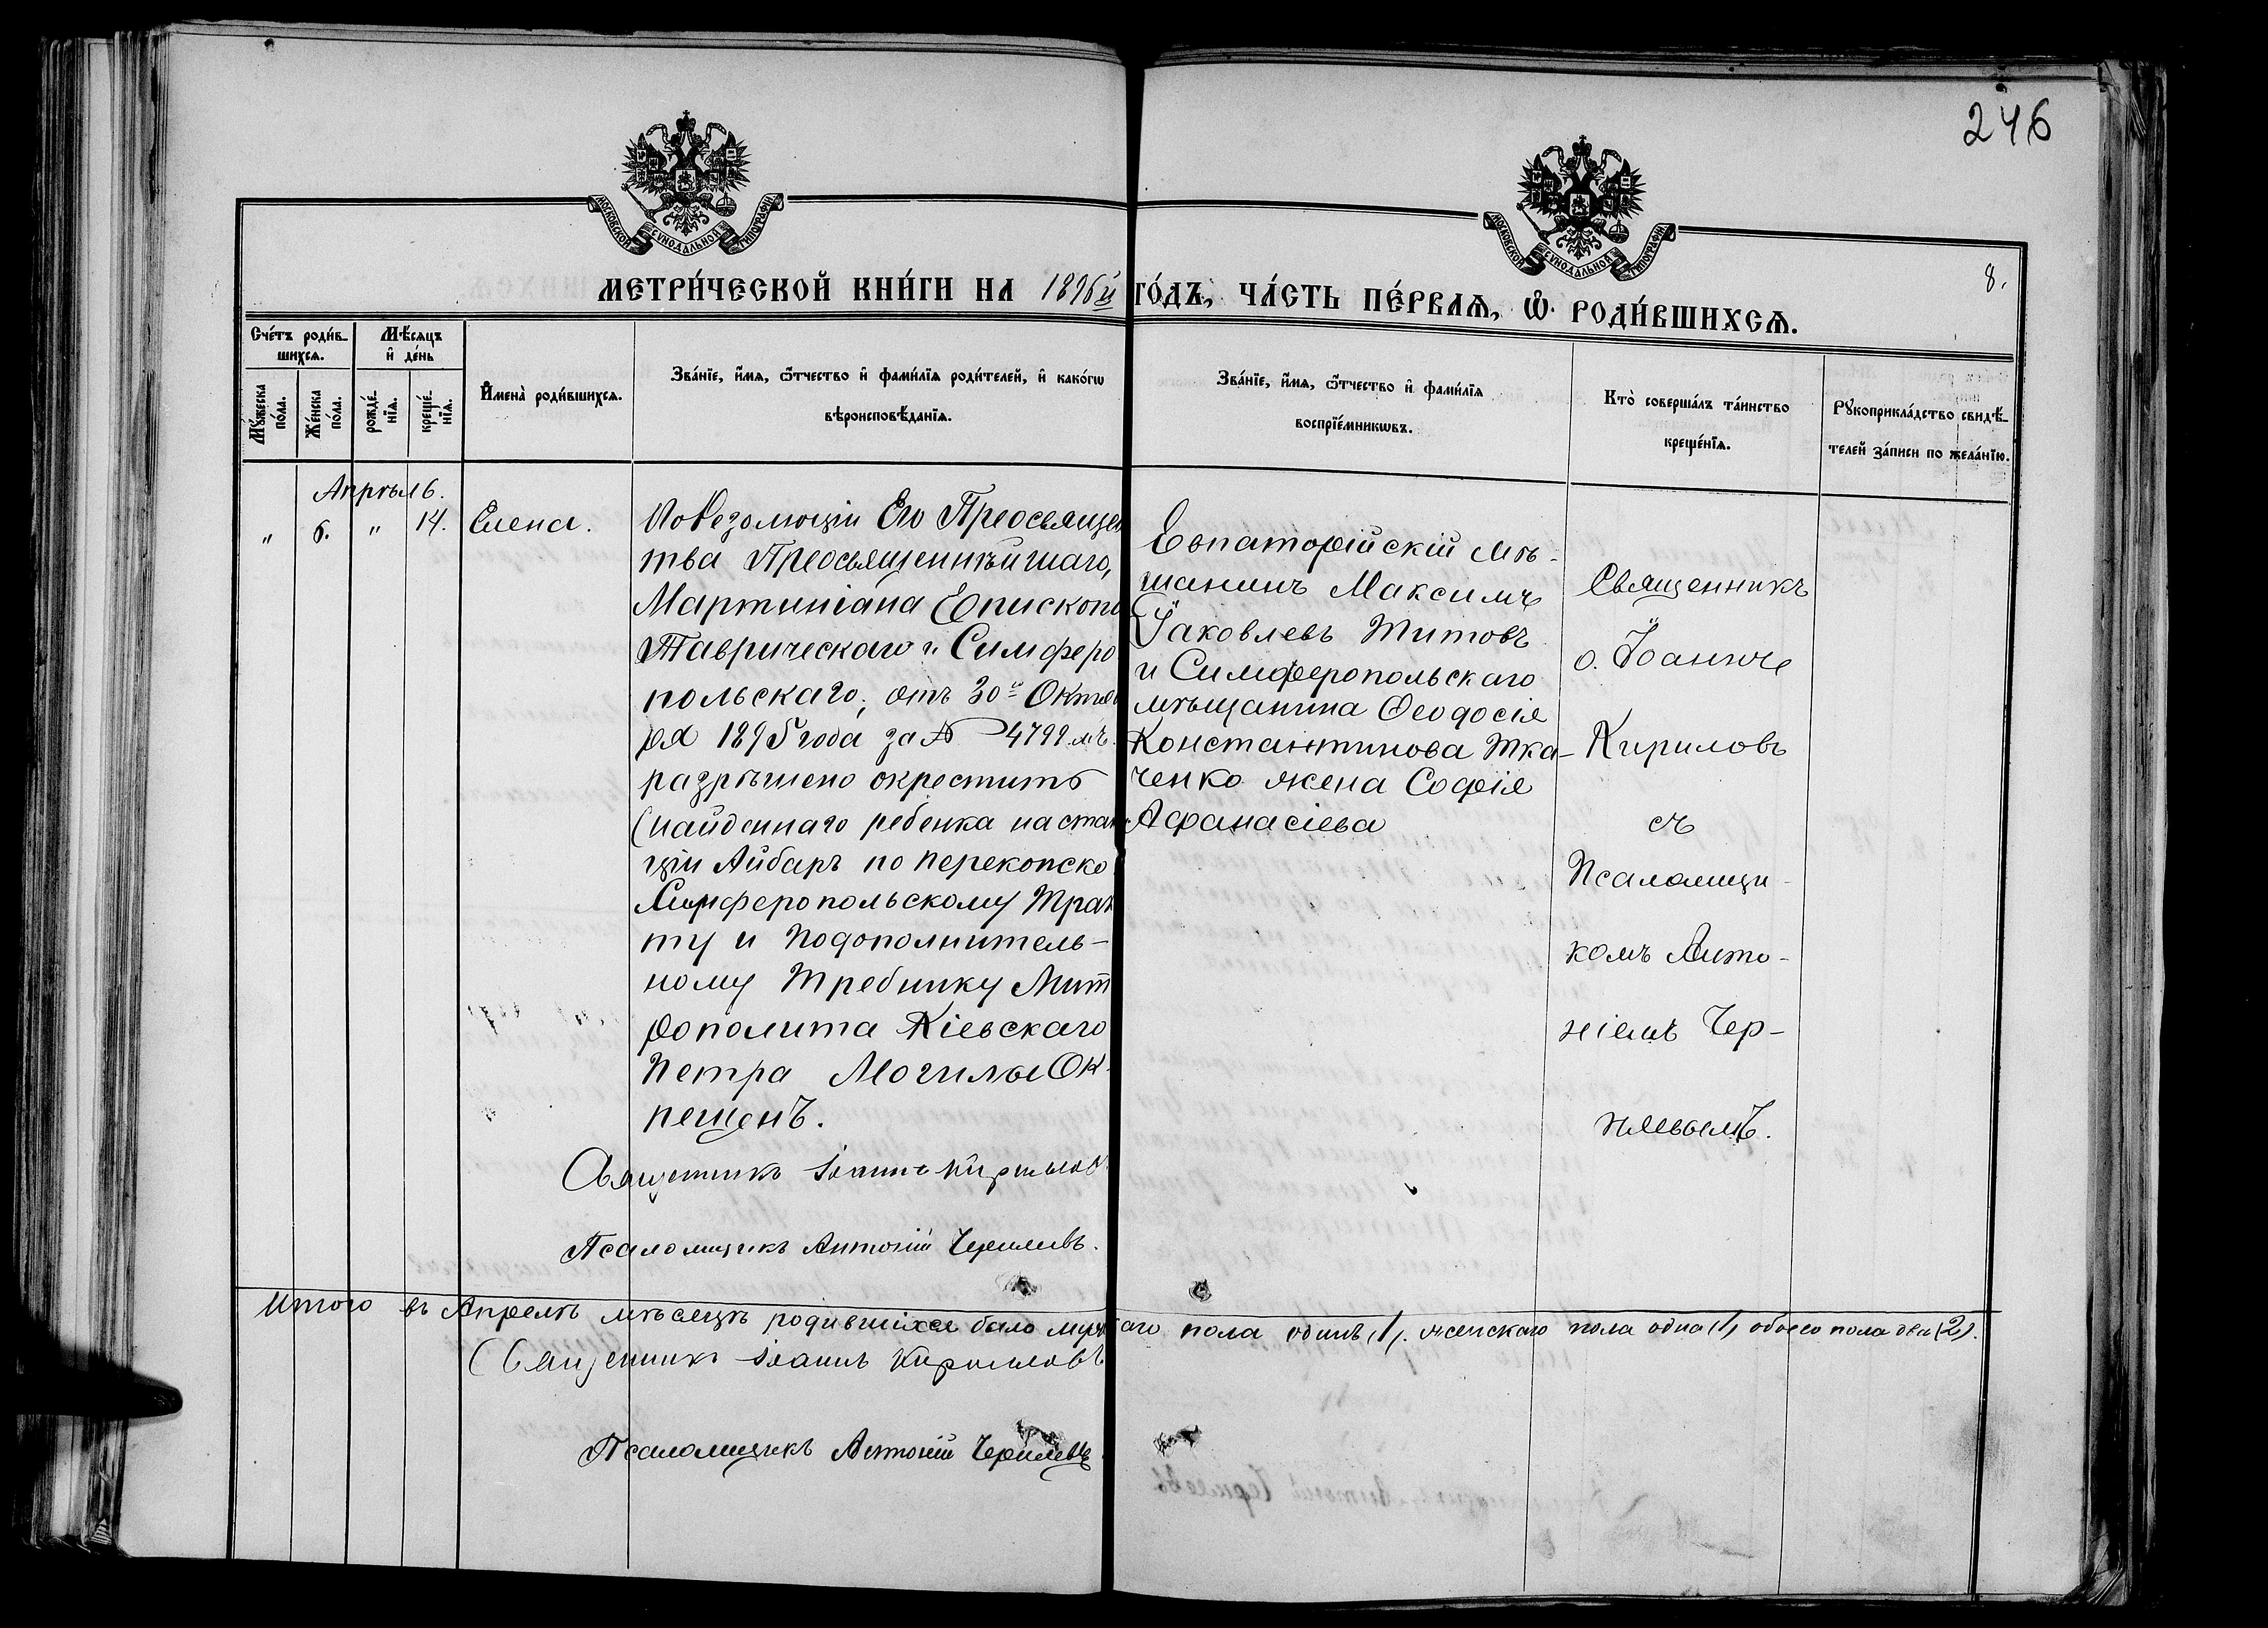 246
МОСКОВСКОЙ СУНОДАЛЬНОЙ ТИПОГРАФІИ
МОСКОВСКОЙ СУНОДАЛЬНОЙ ТИПОГРАФІИ
8.
МЕТРИ́ЧЕСКОЙ КНИ́ГИ НА 1896й ГО́ДЪ, ЧА́СТЬ ПЕ́РВАѦ, Ѽ РОДИ́ВШИХСѦ.
Сче́тъ роди́в-
шихсѧ.
Мѣ́сѧцъ
и҆ де́нь
Мꙋ́жеска
по́ла.
Же́нска
по́ла.
рожде́-
нїѧ.
креще́-
нїѧ.
И҆мена̀ роди́вшихсѧ.
Зва́нїе, и҆́мѧ, ѻ҆́тчество и҆ фами́лїѧ роди́телей, и҆ како́гѡ
вѣроисповѣ́данїѧ.
Зва́нїе, и҆́мѧ, ѻ҆́тчество и҆ фами́лїѧ
воспрїе́мникѡвъ.
Кто̀ соверша́лъ та́инство
креще́нїѧ.
Рꙋкоприкла́дство свидѣ́-
телей за́писи по жела́нїю.
Апрѣль.
" 6. " 14. Елена.
По Резолюціи Его Преосвящен
тва Преосвященнѣйшаго,
Мартиніана Епископа
Таврическаго и Симферо
польскаго, отъ 30го Октяб
ря 1895 года за № 4799 мъ
разрѣшено окрестить
(найденнаго ребенка на стан
ціи Айбаръ по Перекопско
Симферопольскому Трак
ту и Подополнитель-
ному Требнику Мит
рополита Кіевскаго
Петра Могилы Ок-
рещенъ.
Священникъ Іоаннъ Кириловъ
Псаломщикъ Антоній Черняевъ.
Евпаторійскій мѣ-
щанинъ Максимъ
Іаковлевъ Титовъ
и Симферопольскаго
мѣщанина Ѳеодосія
Константинова Тка-
ченко жена Софія
Афанасіева
Священникъ
о. Іоаннъ
Кириловъ
съ
Псаломщи-
комъ Анто-
ніемъ Чер-
няевымъ.
Итого въ Апрелѣ мѣсяцѣ родившихся было мужскаго пола одинъ (1). женскаго пола одна (1) обоего пола два (2).
Священникъ Іоаннъ Кириловъ
Псаломщикъ Антоній Черняевъ